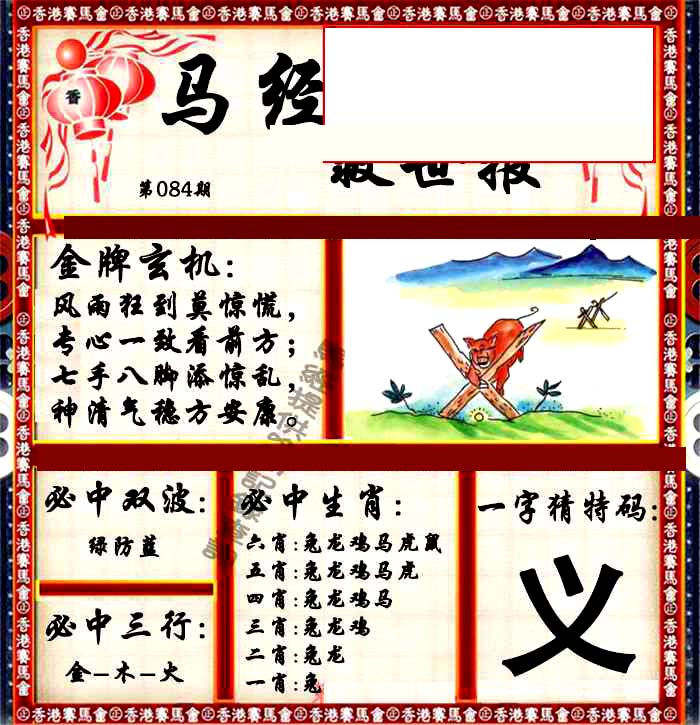 香港賽馬會 香港賽馬會 香港賽馬會 香港賽馬會 香港賽馬會 香港賽馬會 香港賽馬會
马经
救世报
香
第084期
金牌玄机:
风雨狂到莫惊慌,
专心一致看前方;
七手八脚添惊乱,
神清气稳方安康。
必中双波:
绿防蓝
必中三行:
金-木-火
必中生肖:
六肖:兔龙鸡马虎鼠
五肖:兔龙鸡马虎
四肖:兔龙鸡马
三肖:兔龙鸡
二肖:兔龙
一肖:兔
一字猜特码:
义
香港賽馬會 香港賽馬會 香港賽馬會 香港賽馬會 香港賽馬會 香港賽馬會 香港賽馬會